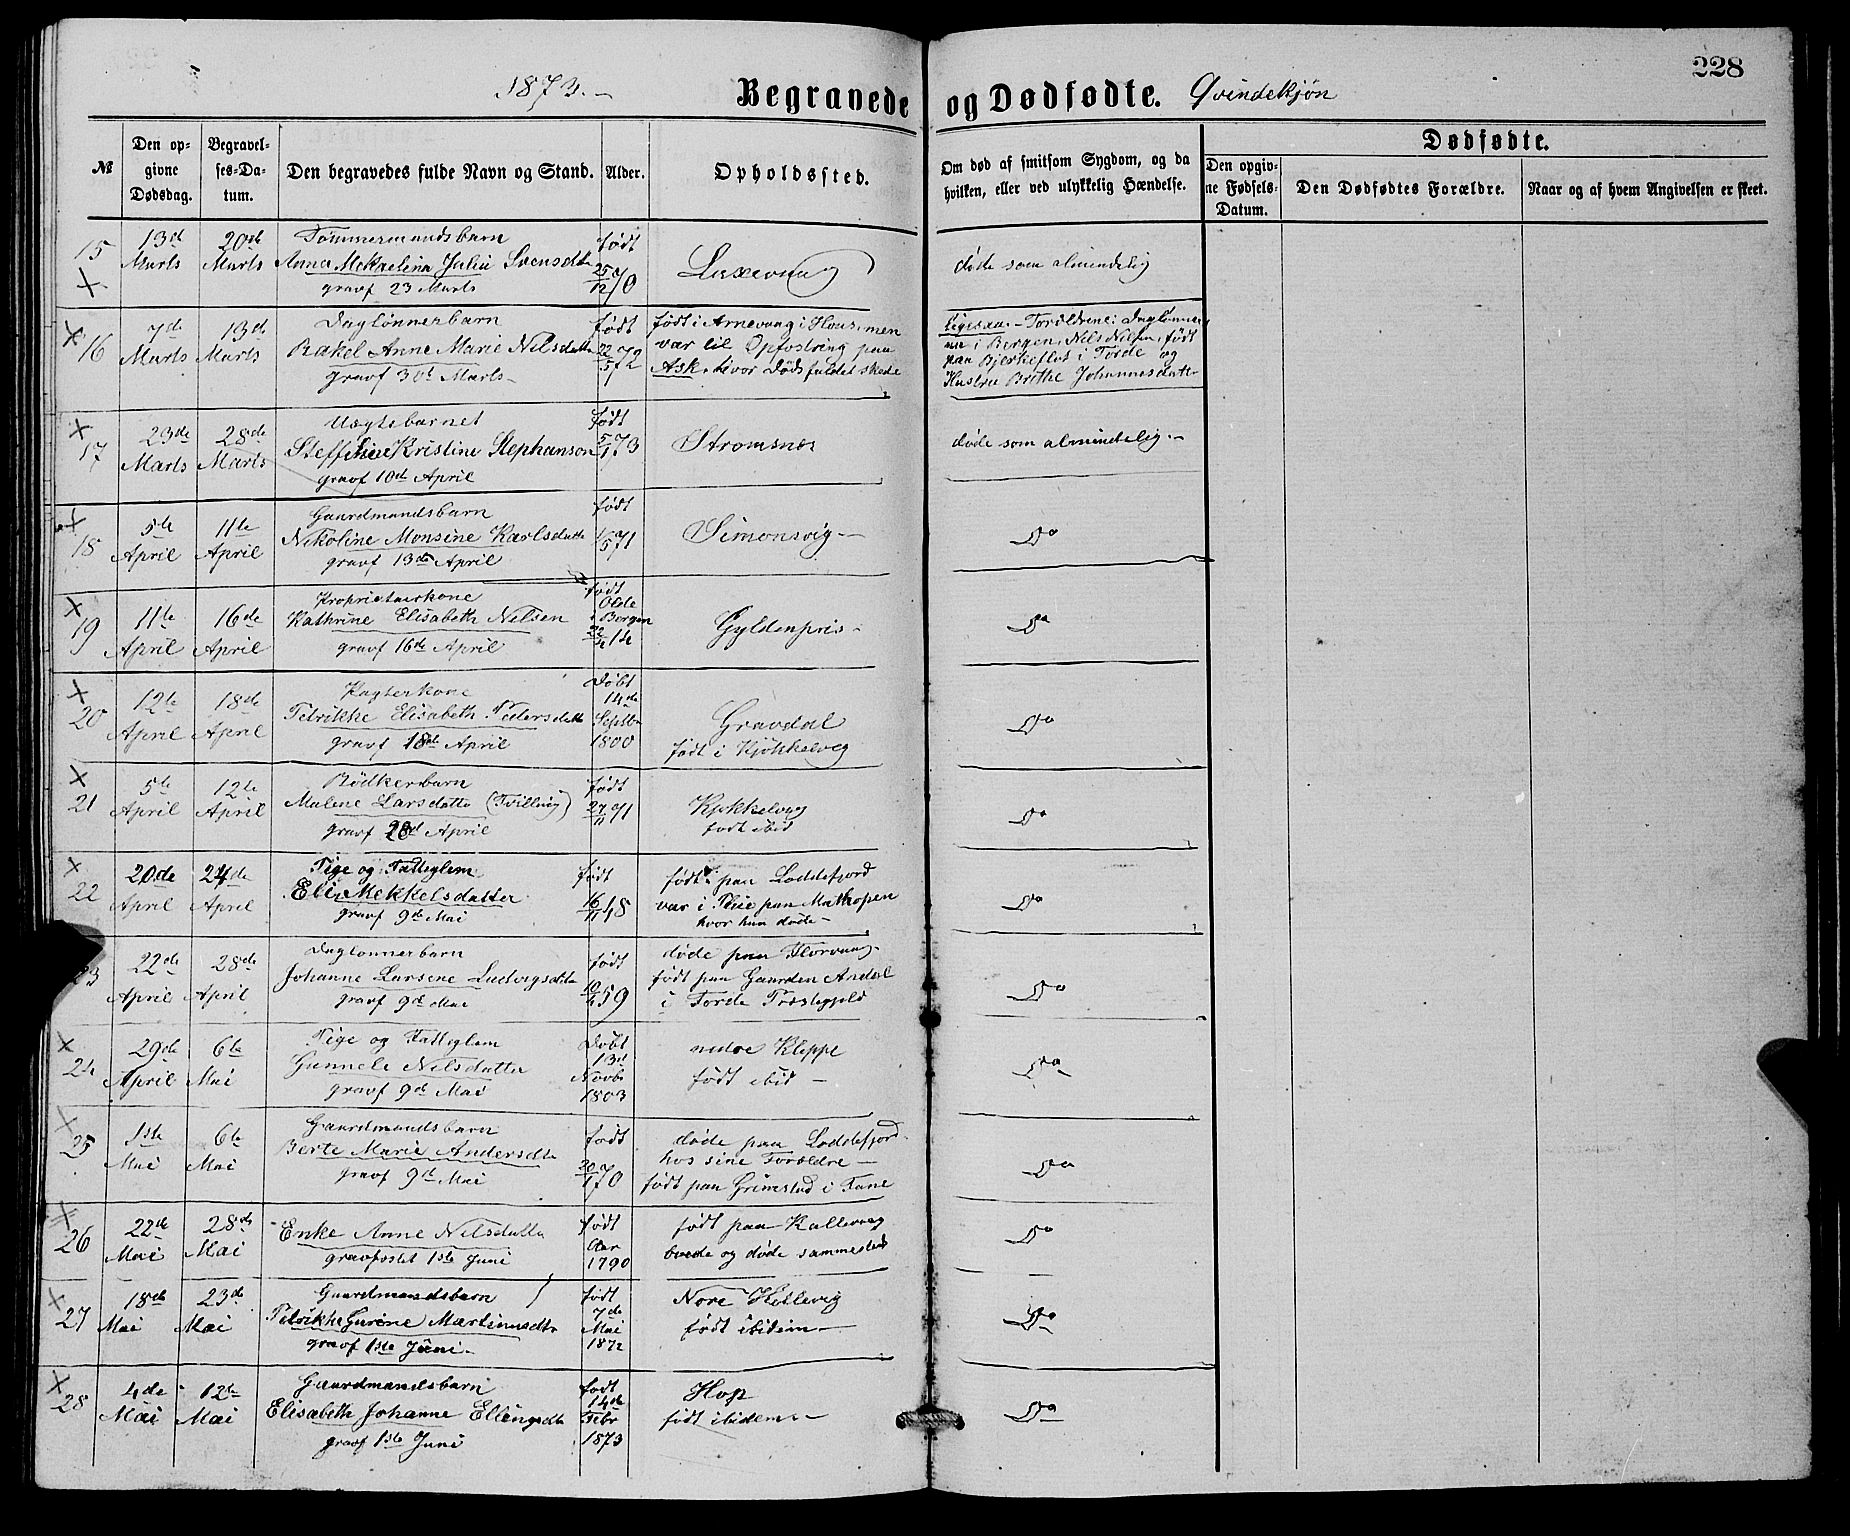 228
1873.
Begravede og Dødfødte. Qvindekjøn
№
Den opgivne Dødsdag.
Begravelses-Datum.
Den begravedes fulde Navn og Stand.
Alder.
Opholdssted.
Om død af smitsom Sygdom, og da hvilken, eller ved ulykkelig Hændelse.
Dødfødte.
Den opgivne Fødsels-Datum.
Den Dødfødtes Forældre.
Naar og af hvem Angivelsen er skeet.
15
13de Marts
20de Marts
Tømmermandsbarn
Anna Mekaelina Julie Svensdtr
gravf 23 Marts
født 25/12 70
Laxevaag
døde som almindelig
16
7de Marts
13de Marts
Daglønnerbarn
Rakel Anne Marie Nilsdatter
gravf 30t Marts
født 22/5 72
født i Arnevaag i Hous, men
var til Opfostring paa
Ask, hvor Dødsfaldet skede
ligesaa. Forældrene: Daglønner
i Bergen, Nels Nelsen, født
paa Bjerkeflot i Førde og
Hustru Brithe Johannesdatter
17
23de Marts
28de Marts
Uægtebarnet
Steffine Kristine Stephanson
gravf 10de April
født 5/1 73
Strømsnes
døde som almindelig.
18
5te April
11te April
Gaardmandsbarn
Nikoline Monsine Karlsdatter
gravf 13de April
født 1/5 71
Simonsvig
Do
19
11te April
16de April
Kroprietærkone
Kathrine Elisabeth Nelsen
gravf 16de April
født Olde i Bergen
Gyldenpris
Do
20
12te April
18de April
Kagterkone
Petrikke Elisabeth Pedersdatter
gravf 18de April
Døbt 14de Septbr 1800
Gravdal
født i Kjøkkelvig
Do
21
5te April
12te April
Bødkerbarn
Malene Larsdatter (Tvilling)
gravf 28de April
født 27/11 71
Kjøkkelvig
født ibid
Do
22
20de April
24de April
Pige og Fattiglem
Eli Mekkelsdatter
gravf 9de Mai
født 16/11 48
født paa Loddefjord
var i Pleie paa Mathopen
hvor hun døde
Do
23
22de April
28de April
Dagløннerbarn
Johanne Larsene Ludvigsdtr
gravf 9de Mai
født 10/4 59
døde paa Florvaag
født paa Gaarden Andal
i Førde Præstegjeld
Do
24
29de April
6te Mai
Pige og Fattiglem
Gunnele Nilsdatter
gravf 9de Mai
Døbt 13de Novbr 1803
nedre Kleppe
født ibid
Do
25
1ste Mai
6te Mai
Gaardmandsbarn
Berte Marie Andersdtr
gravf 9de Mai
født 20/1 70
døde paa Loddefjord
hos sine Forældre
født paa Grimstad i Fane
Do
26
22de Mai
28de Mai
Enke Anne Nilsdatter
gravfæstet 1ste Juni
født Aar 1790
født paa Kallevaag
boede og døde sammesteds
Do
27
18de Mai
23de Mai
Gaardmandsbarn
Petrikke Gurine Martinusdtr
gravf 1ste Juni
født 7de Mai 1872
Nore Hillevig
født ibidem
Do
28
4de Mai
12te Mai
Gaardmandsbarn
Elisabeth Johanne Ellingsdtr
gravf 1ste Juni
født 14de Febr 1873
Hop
født ibidem
Do